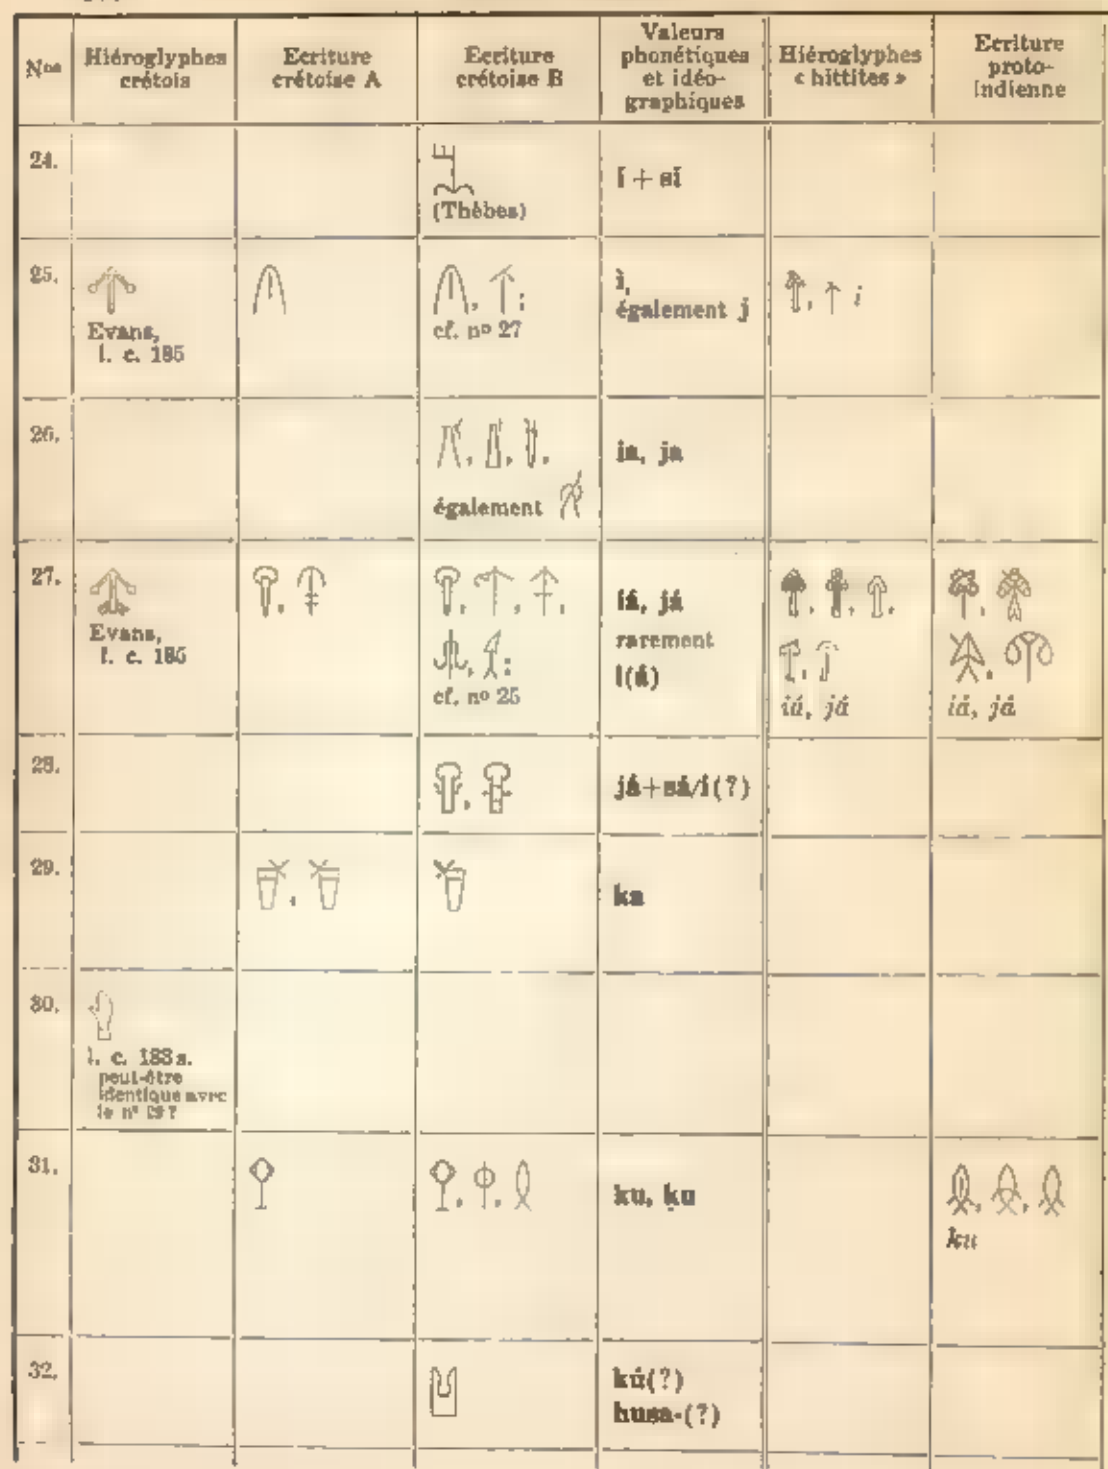 Nos
Hiéroglyphes
crétois
Ecriture
crétoise A
Ecriture
crétoise B
Valeurs
phonétiques
et idéo-
graphiques
Hiéroglyphes
« hittites »
Ecriture
proto-
indienne
24.
(Thèbes)
í + si
25.
Evans,
l. c. 185
cf. nº 27
ì,
également j
i
26.
également
ia, ja
27.
Evans,
l. c. 185
cf. nº 25
iá, já
rarement
i(á)
iá, já
iá, já
28.
já+sá/í(?)
29.
ka
30.
l. c. 183 s.
peut-être
identique avec
le nº 29 ?
31.
ku, ḳu
ku
32.
kú(?)
husa-(?)